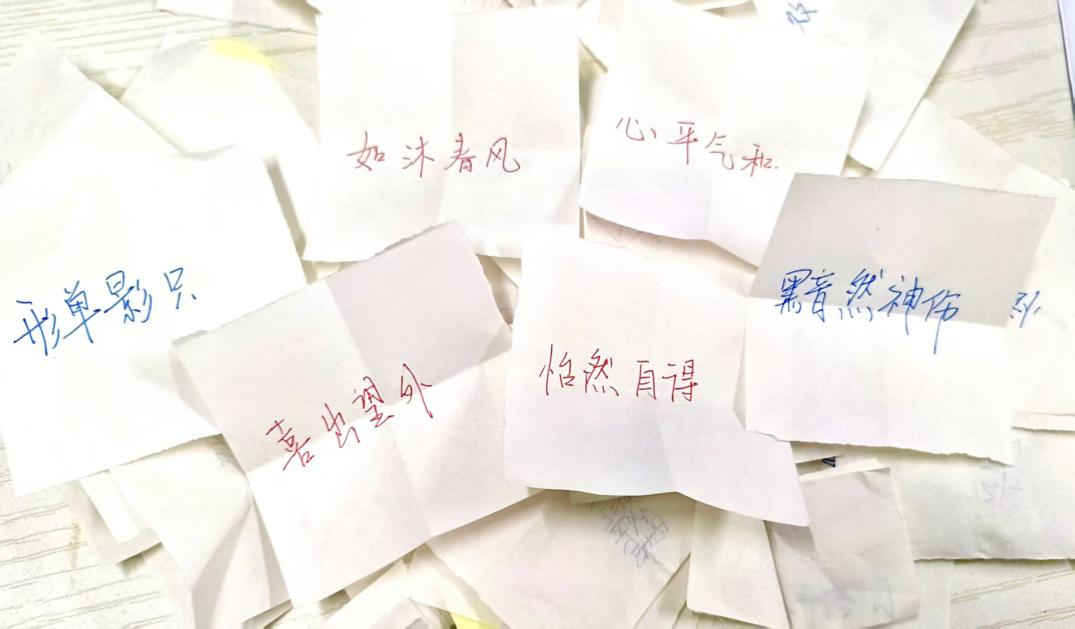 如沐春风
心平气和
形单影只
黯然神伤
喜出望外
怡然自得